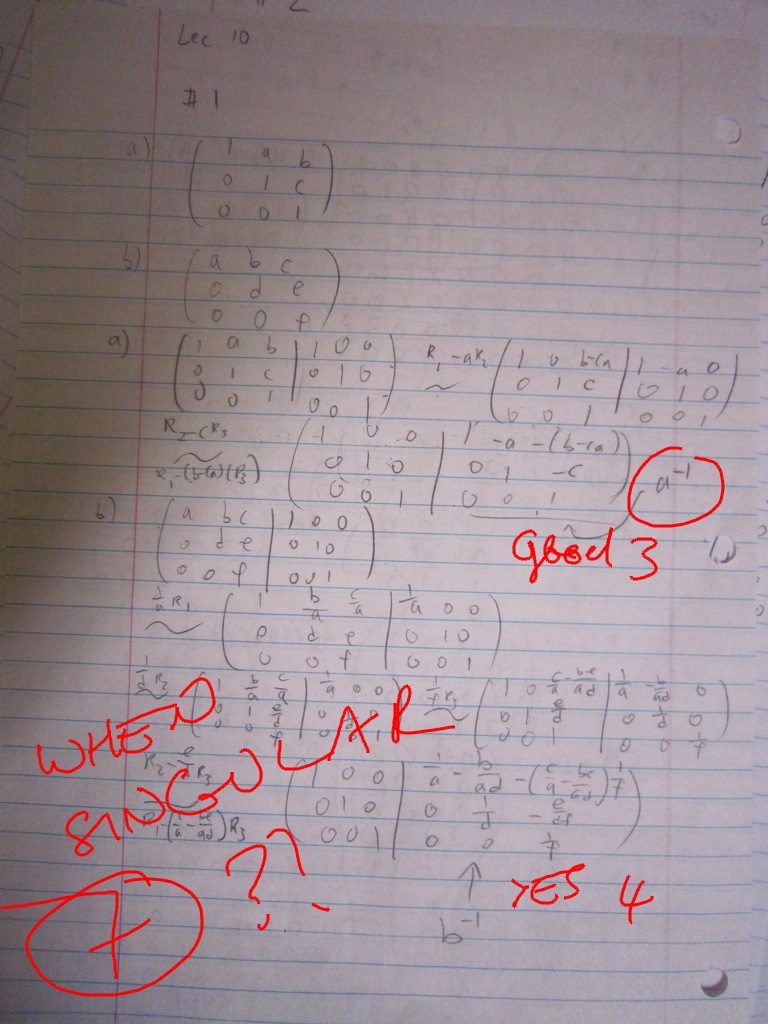 Lec 10
# 1
a) ( 1 a b
0 1 c
0 0 1 )
b) ( a b c
0 d e
0 0 f )
a) ( 1 a b | 1 0 0
0 1 c | 0 1 0
0 0 1 | 0 0 1 ) R1 - aR2 ~ ( 1 0 b-ca | 1 -a 0
0 1 c | 0 1 0
0 0 1 | 0 0 1 )
R2 - cR3
~
R1 - (b-ca)(R3) ( 1 0 0 | 1 -a -(b-ca)
0 1 0 | 0 1 -c
0 0 1 | 0 0 1 ) a^-1
Good 3
b) ( a b c | 1 0 0
0 d e | 0 1 0
0 0 f | 0 0 1 )
1/a R1 ~ ( 1 b/a c/a | 1/a 0 0
0 d e | 0 1 0
0 0 f | 0 0 1 )
1/d R2 ~ ( 1 b/a c/a | 1/a 0 0
0 1 e/d
0 0 f
1/f R3 ~ ( 1 0 c/a - be/ad | 1/a -b/ad 0
0 1 e/d | 0 1/d 0
0 0 1 | 0 0 1/f )
R2 - e/d R3
~
R1 - (c/a - be/ad) R3 ( 1 0 0 | 1/a - b/ad -(c/a - be/ad) 1/f
0 1 0 | 0 1/d -e/df
0 0 1 | 0 0 1/f )
b^-1
WHEN
SINGULAR
??
YES 4
7